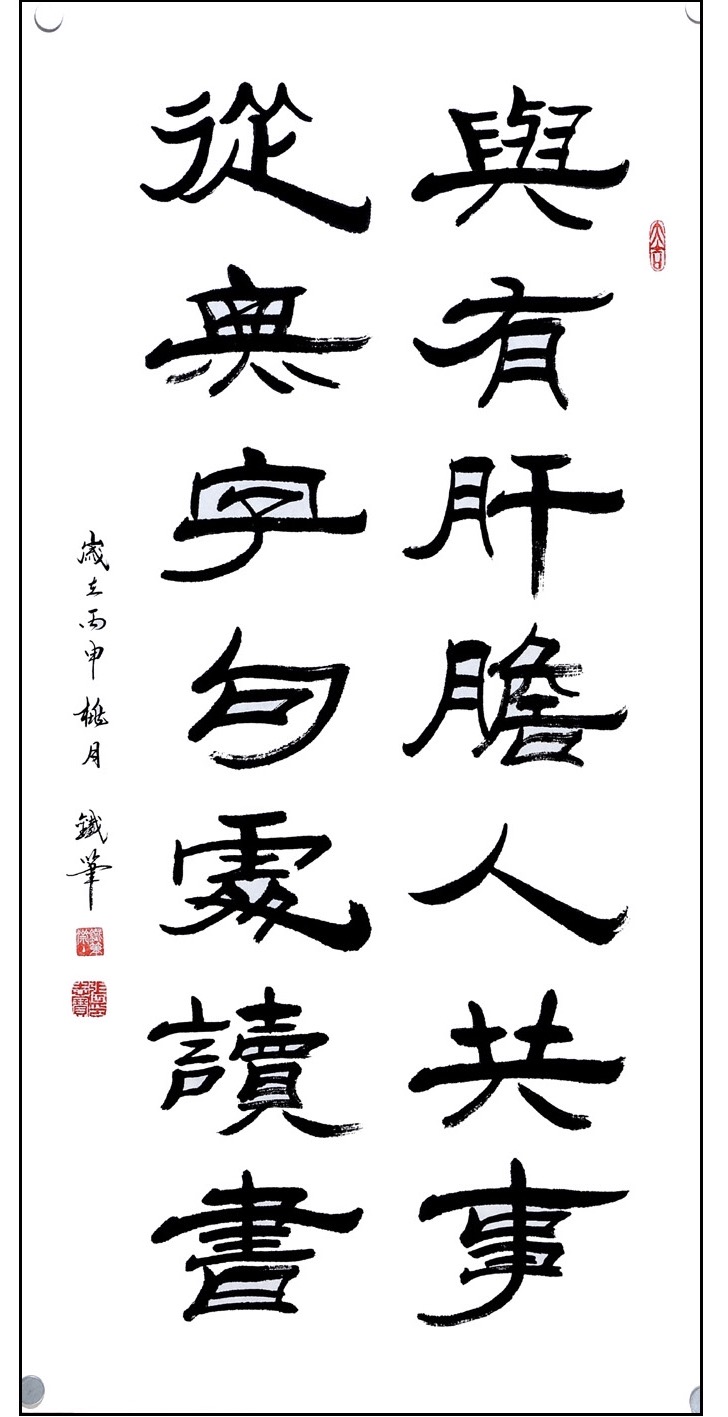 與有肝膽人共事
從無字句處讀書
歲在丙申桃月 鐵筆
大吉